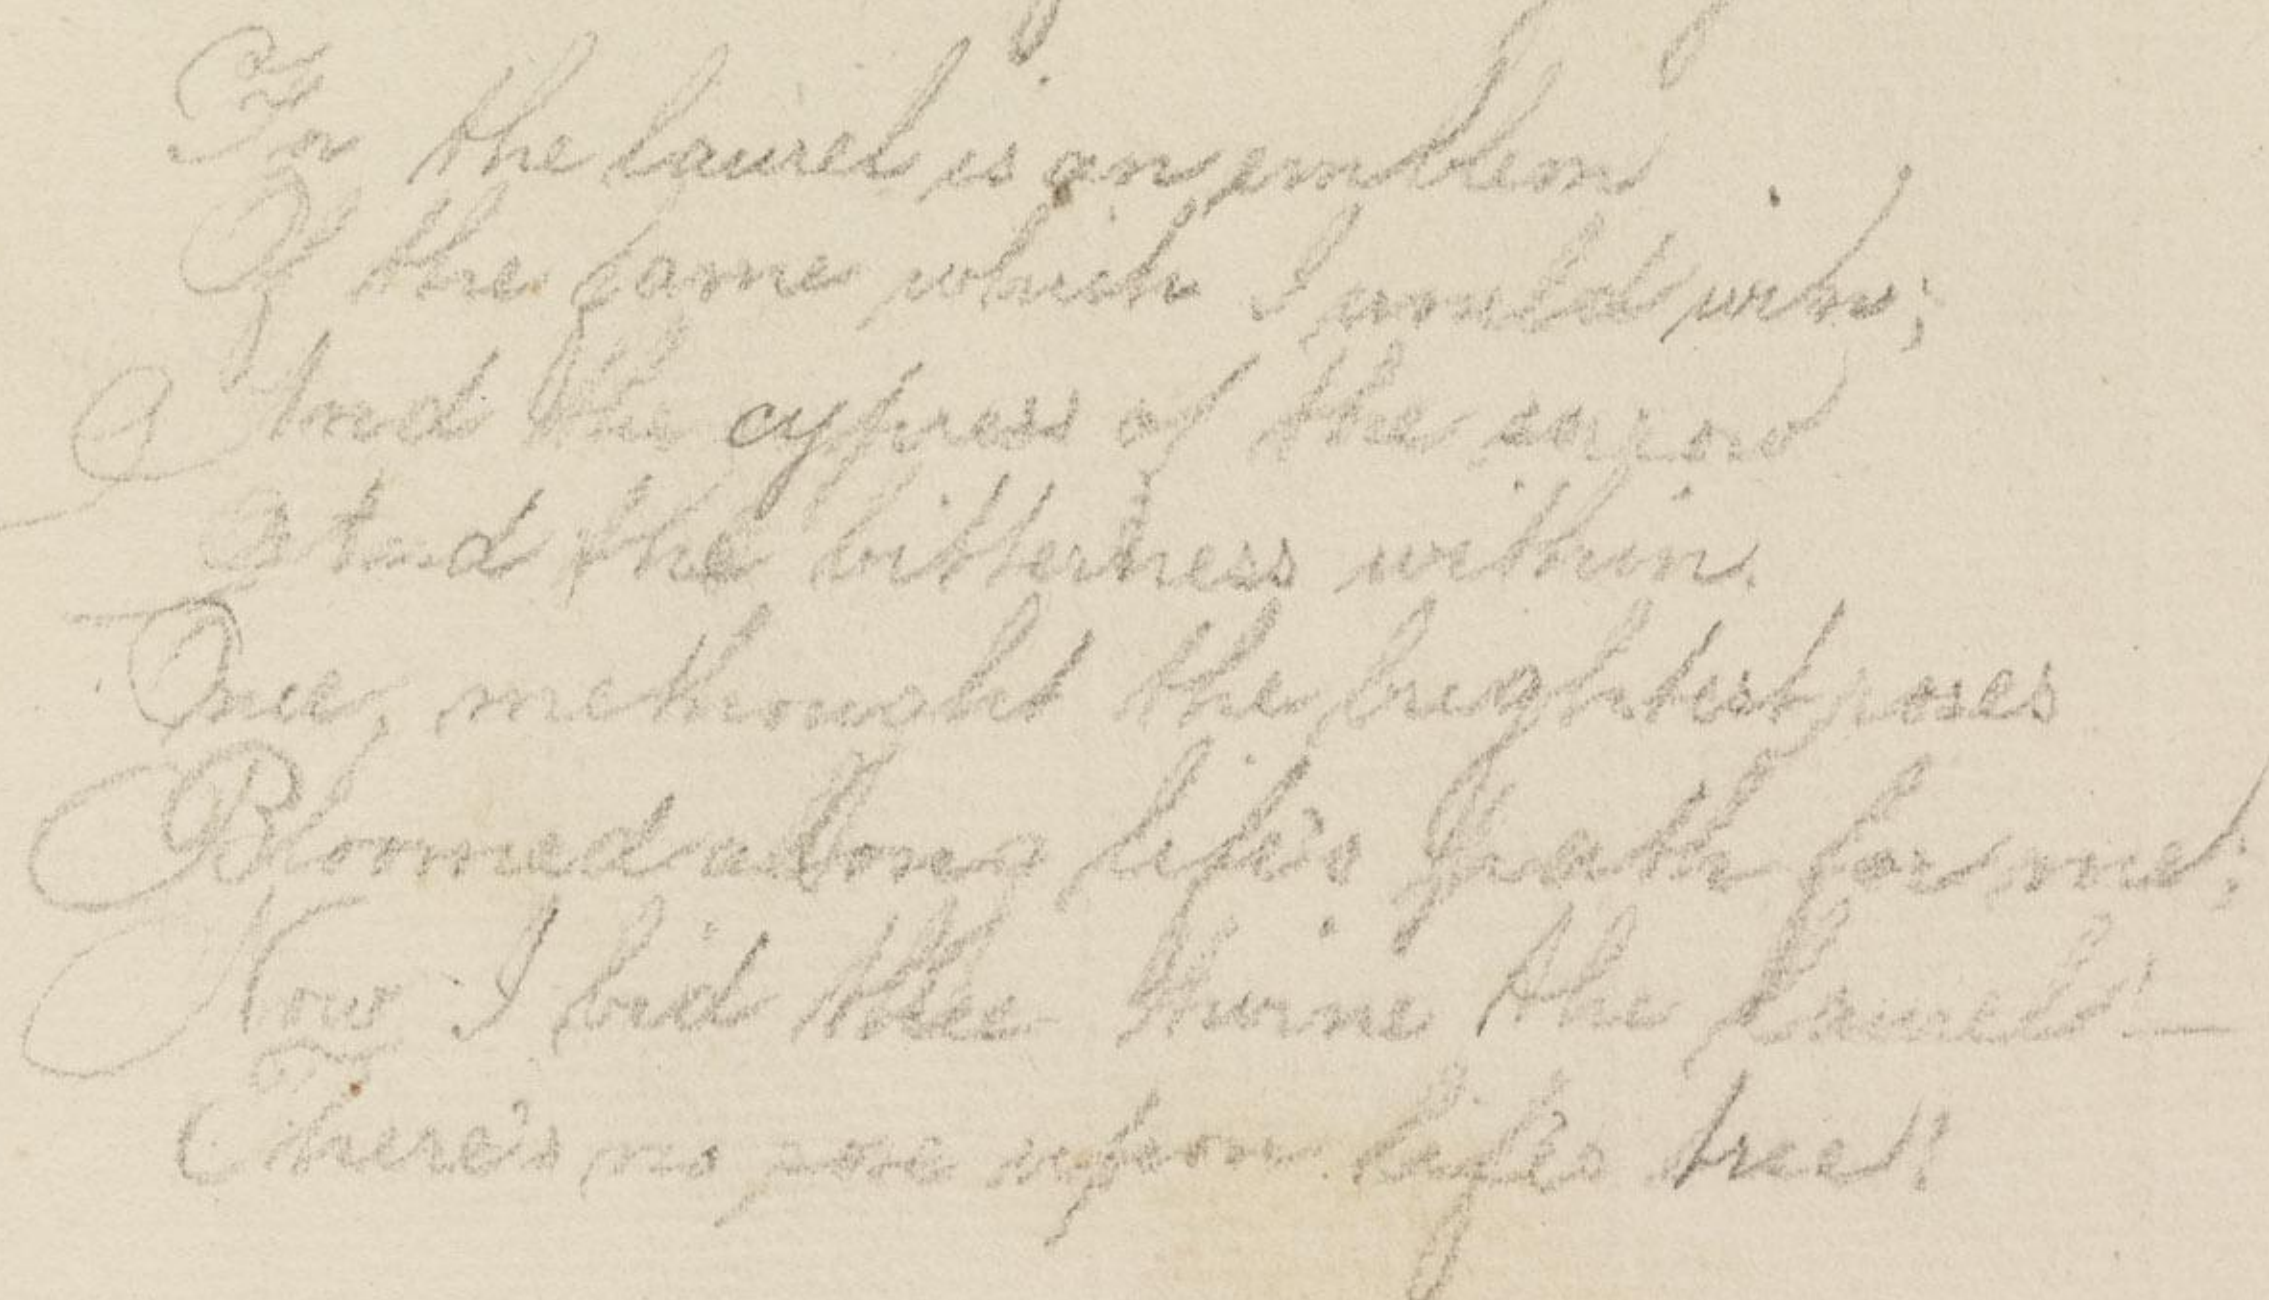 For the laurel is an emblem
Of the fame which I would win;
And the cypress of the sorrow
And the bitterness within.
Once, methought the brightest roses
Bloomed along life's path for me;
Now I bid thee twine the laurel!—
There's no rose upon life's tree!